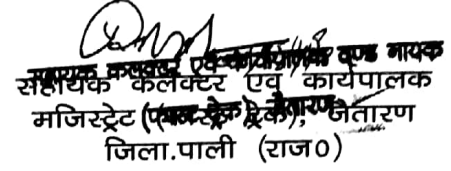 सहायक कलेक्टर एवं कार्यपालक दण्ड नायक
सहायक कलेक्टर एवं कार्यपालक
मजिस्ट्रेट (फास्ट ट्रेक), जैतारण
जिला.पाली (राज0)